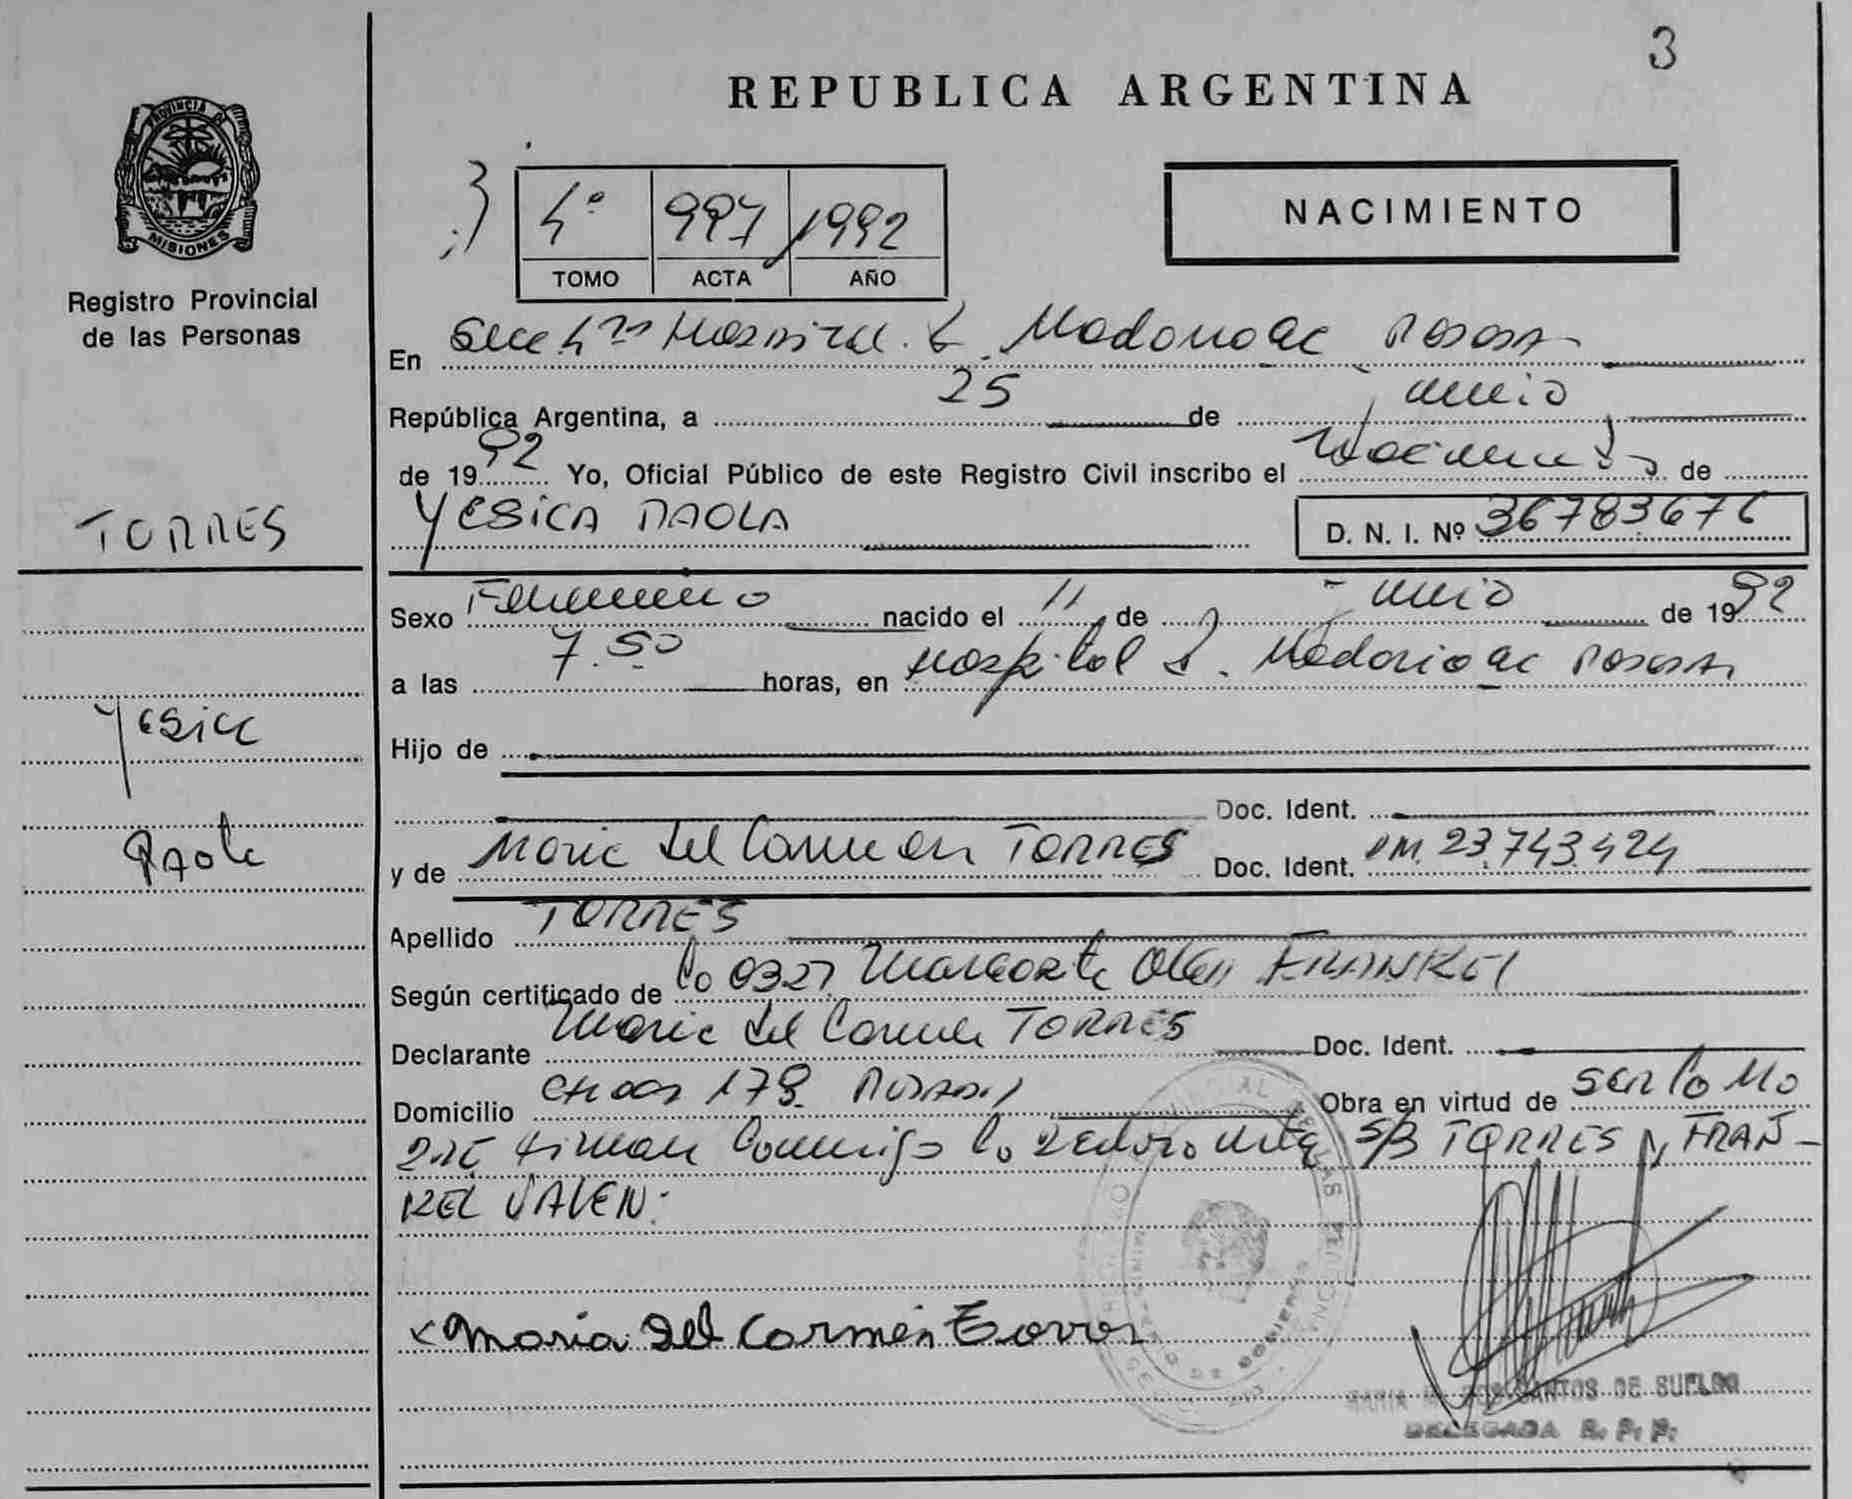 3
REPUBLICA ARGENTINA
PROVINCIA DE
MISIONES
Registro Provincial
de las Personas
4º 997 1992
TOMO ACTA AÑO
NACIMIENTO
En Secc 4ta Hospital R. Madariaga Posadas
República Argentina, a 25 de junio
de 1992 Yo, Oficial Público de este Registro Civil inscribo el Nacimiento de
TORRES
YESICA PAOLA D. N. I. Nº 36783676
Sexo Femenino nacido el 11 de junio de 1992
a las 7.50 horas, en Hospital R. Madariaga Posadas
Yesica
Hijo de
Doc. Ident.
Paola
y de Maria del Carmen TORRES Doc. Ident. 23.743.424
Apellido TORRES
Según certificado de 0327 Margarita Olga FRANKEL
Declarante Maria del Carmen TORRES Doc. Ident.
Domicilio Chaco 178 Posadas Obra en virtud de ser la Ma
dre firman conmigo la S/B TORRES y FRAN-
KEL VALEN.
Maria del Carmen Torres
MARIA DOS SANTOS DE
DELEGADA R. P. P.